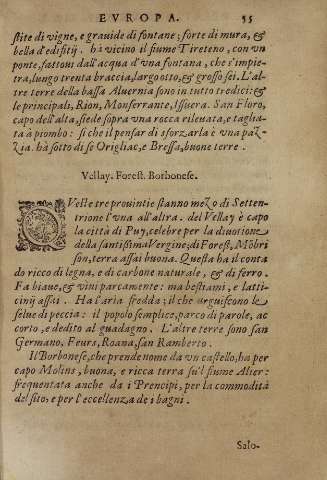 EVROPA. 55
stite di vigne, e grauide di fontane; forte di mura, &
bella d'edifitij. ha vicino il fiume Tireteno, con vn
ponte, fattoui dall'acqua d'vna fontana, che s'impie-
tra, lungo trenta braccia, largo otto, & grosso sei. L'al-
tre terre della bassa Aluernia sono in tutto tredici: &
le principali, Rion, Monferrante, Issuera. San Floro,
capo dell'alta, siede sopra vna rocca rileuata, e taglia-
ta à piombo: si che il pensar di sforzarla è vna paz-
zia. ha sotto di se Origliac, e Bressa, buone terre.
Vellay. Forest. Borbonese.
QVeste tre prouintie stanno mezo di Setten-
trione l'vna all'altra. del Vellay è capo
la città di Puy, celebre per la diuotione
della santissima Vergine; di Forest, Mõbri
son, terra assai buona. Questa ha il conta
do ricco di legna, e di carbone naturale, & di ferro.
Fa biaue, & vini parcamente: ma bestiami, e latti-
cinij assai. Ha l'aria fredda; il che arguiscono le
selue di peccia: il popolo semplice, parco di parole, ac
corto, e dedito al guadagno. L'altre terre sono san
Germano, Feurs, Roana, san Ramberto.
Il Borbonese, che prende nome da vn castello, ha per
capo Molins, buona, e ricca terra sù'l fiume Alier:
frequentata anche da i Prencipi, per la commodità
del sito, e per l'eccellenza de i bagni.
Salo-